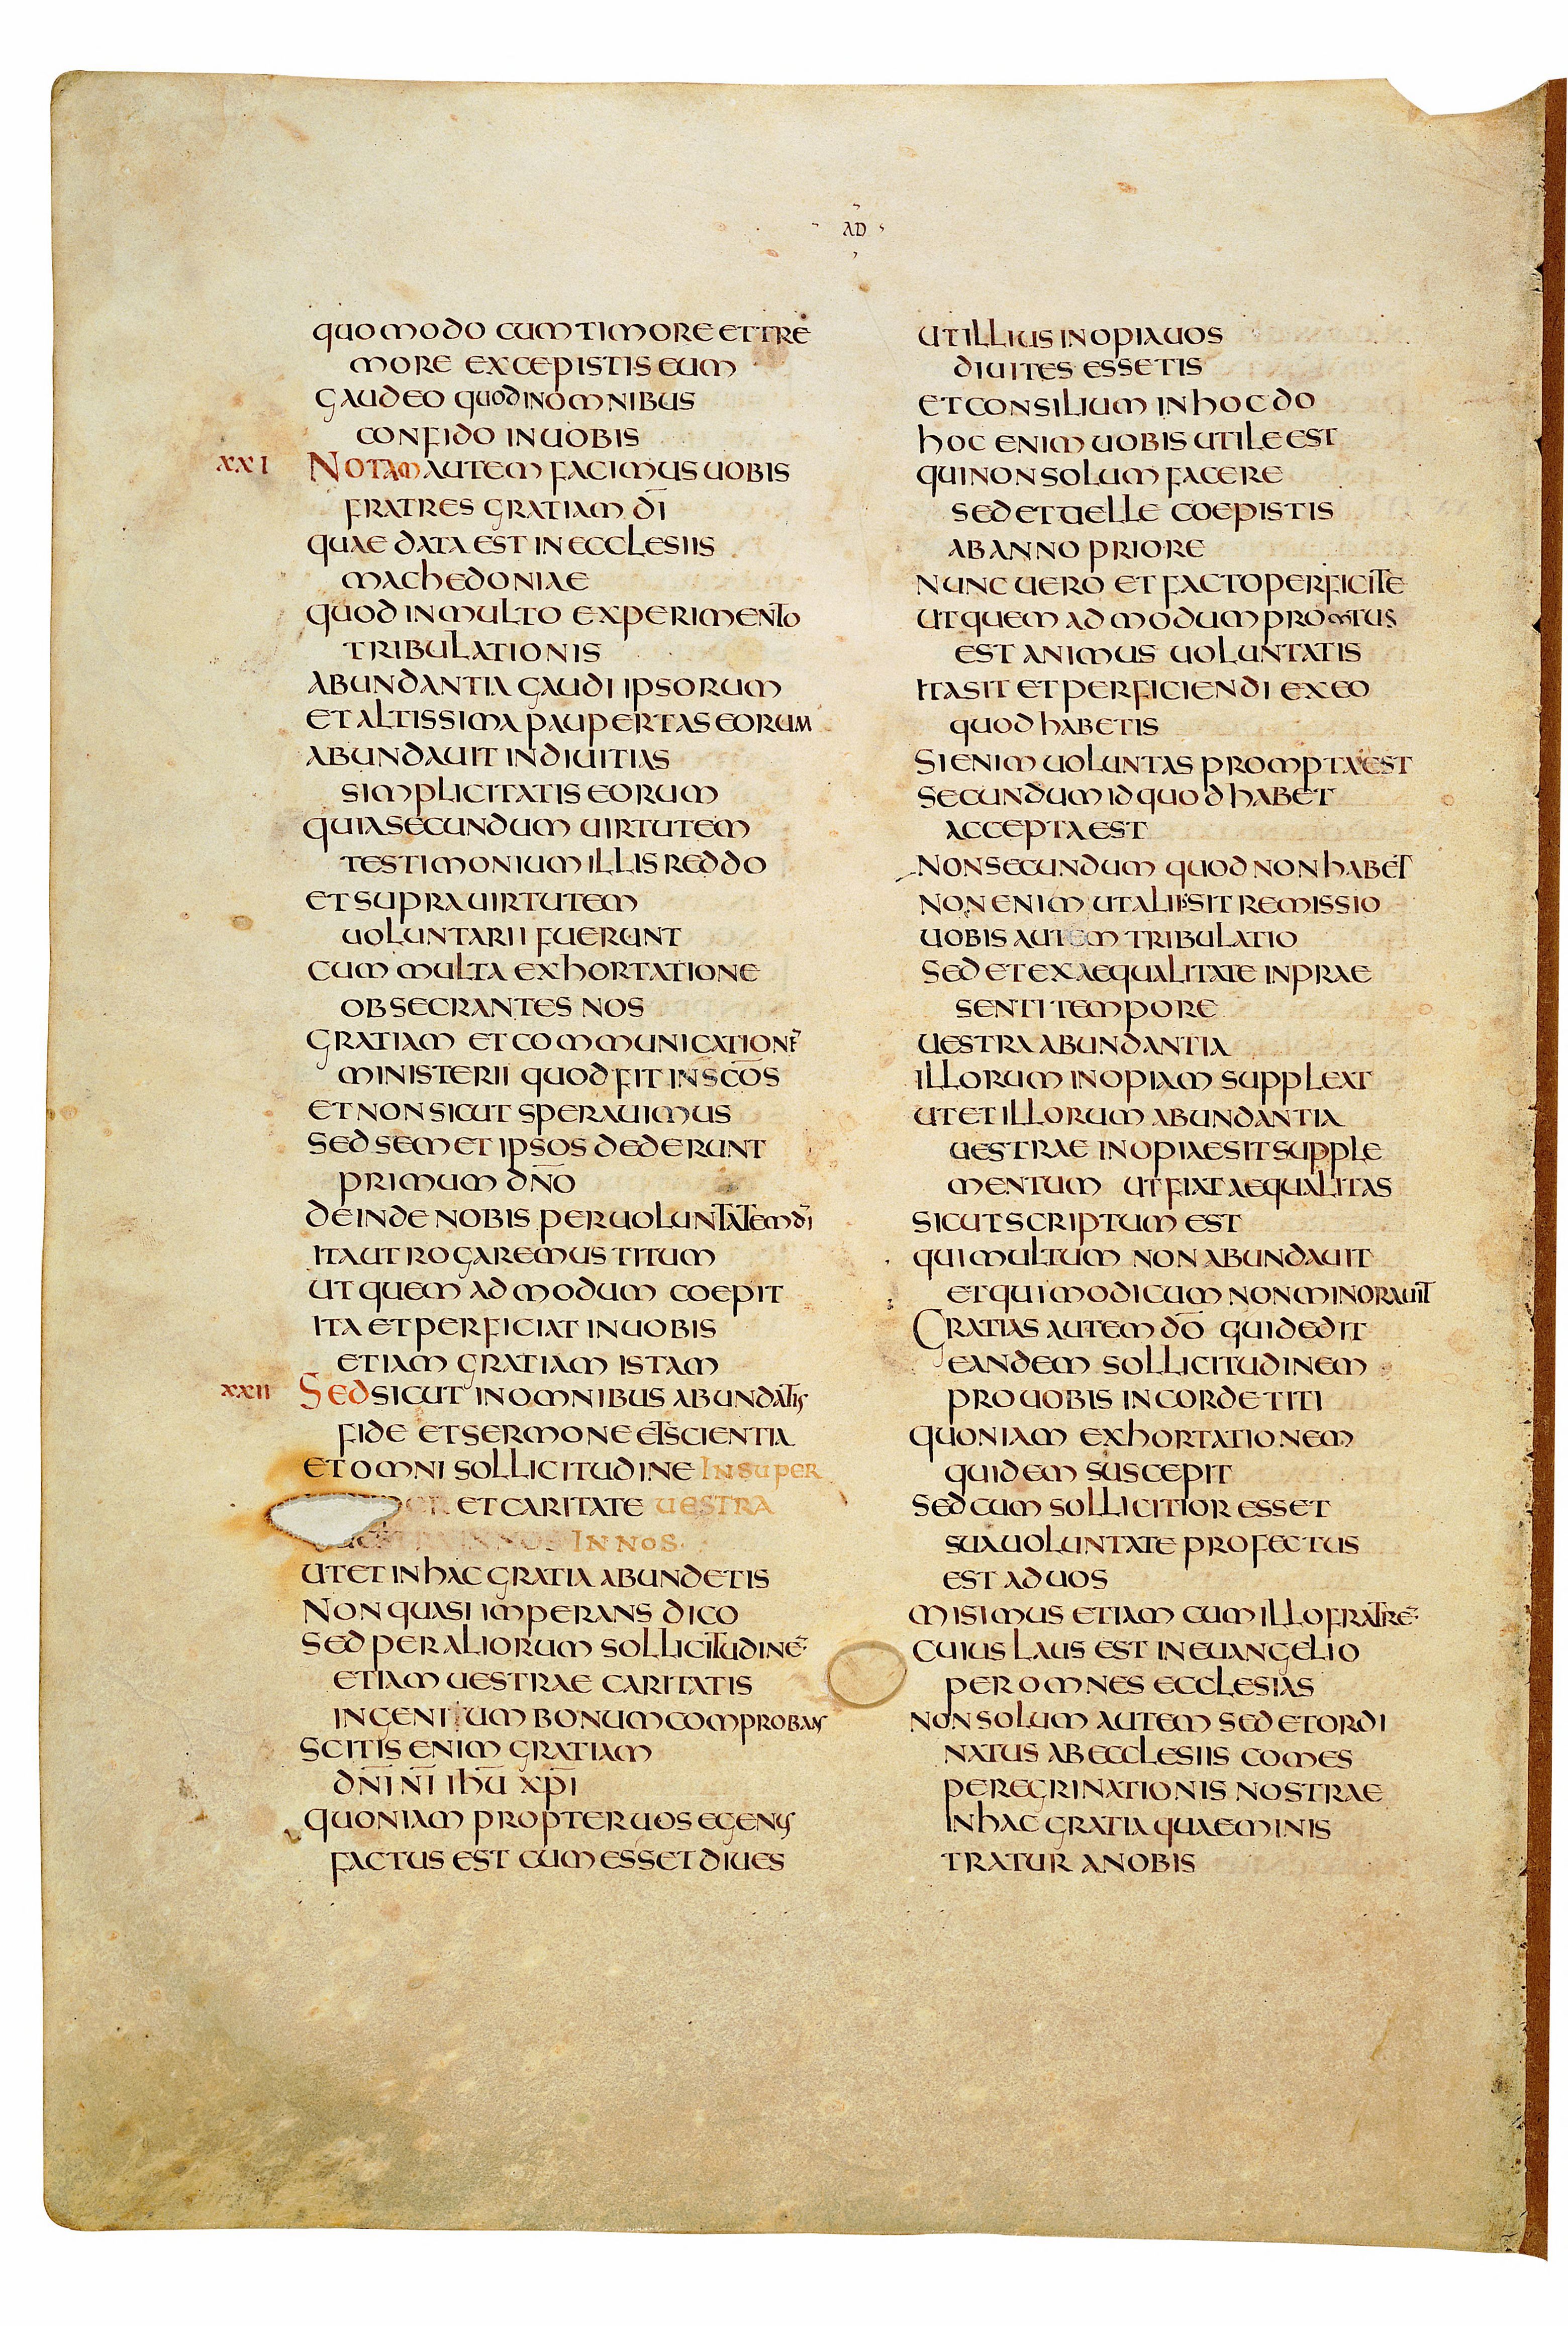 AD
quomodo cum timore et tre
more excepistis eum
Gaudeo quod in omnibus
confido in uobis
XXI Notam autem facimus uobis
fratres gratiam dī
quae data est in ecclesiis
machedoniae
quod in multo experimento
tribulationis
abundantia gaudi ipsorum
et altissima paupertas eorum
abundauit in diuitias
simplicitatis eorum
quia secundum uirtutem
testimonium illis reddo
et supra uirtutem
uoluntarii fuerunt
cum multa exhortatione
obsecrantes nos
gratiam et communicationē
ministerii quod fit in scōs
et non sicut sperauimus
sed semet ipsos dederunt
primum dn̄o
deinde nobis per uoluntatem dī
ita ut rogaremus titum
ut quem ad modum coepit
ita et perficiat in uobis
etiam gratiam istam
XXII Sed sicut in omnibus abundatis
fide et sermone et scientia
et omni sollicitudine insuper
et caritate uestra
in nos
ut et in hac gratia abundetis
Non quasi imperans dico
sed per aliorum sollicitudinē
etiam uestrae caritatis
ingenium bonum comprobans
scitis enim gratiam
dn̄i n̄i ihū xp̄i
quoniam propter uos egenus
factus est cum esset diues
ut illius inopia uos
diuites essetis
et consilium in hoc do
hoc enim uobis utile est
qui non solum facere
sed et uelle coepistis
ab anno priore
Nunc uero et facto perficite
ut quem ad modum promtus
est animus uoluntatis
ita sit et perficiendi ex eo
quod habetis
Si enim uoluntas prompta est
secundum id quod habet
accepta est
non secundum quod non habet
non enim ut aliis sit remissio
uobis autem tribulatio
sed et ex aequalitate in prae
senti tempore
uestra abundantia
illorum inopiam suppleat
ut et illorum abundantia
uestrae inopiae sit supple
mentum ut fiat aequalitas
sicut scriptum est
qui multum non abundauit
et qui modicum non minorauit
Gratias autem dō qui dedit
eandem sollicitudinem
pro uobis in corde titi
quoniam exhortationem
quidem suscepit
sed cum sollicitior esset
sua uoluntate profectus
est ad uos
misimus etiam cum illo fratrē
cuius laus est in euangelio
per omnes ecclesias
non solum autem sed et ordi
natus ab ecclesiis comes
peregrinationis nostrae
in hac gratia quae minis
tratur a nobis